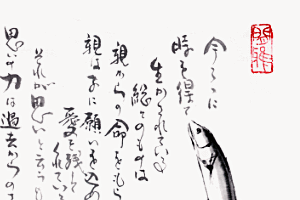 今ここに
時を得て
生かされている
総てのものは
親からの命をもら
親は子に願いを込め
愛を残して
くれている
それが思いと言うも
思いや力は過去からの